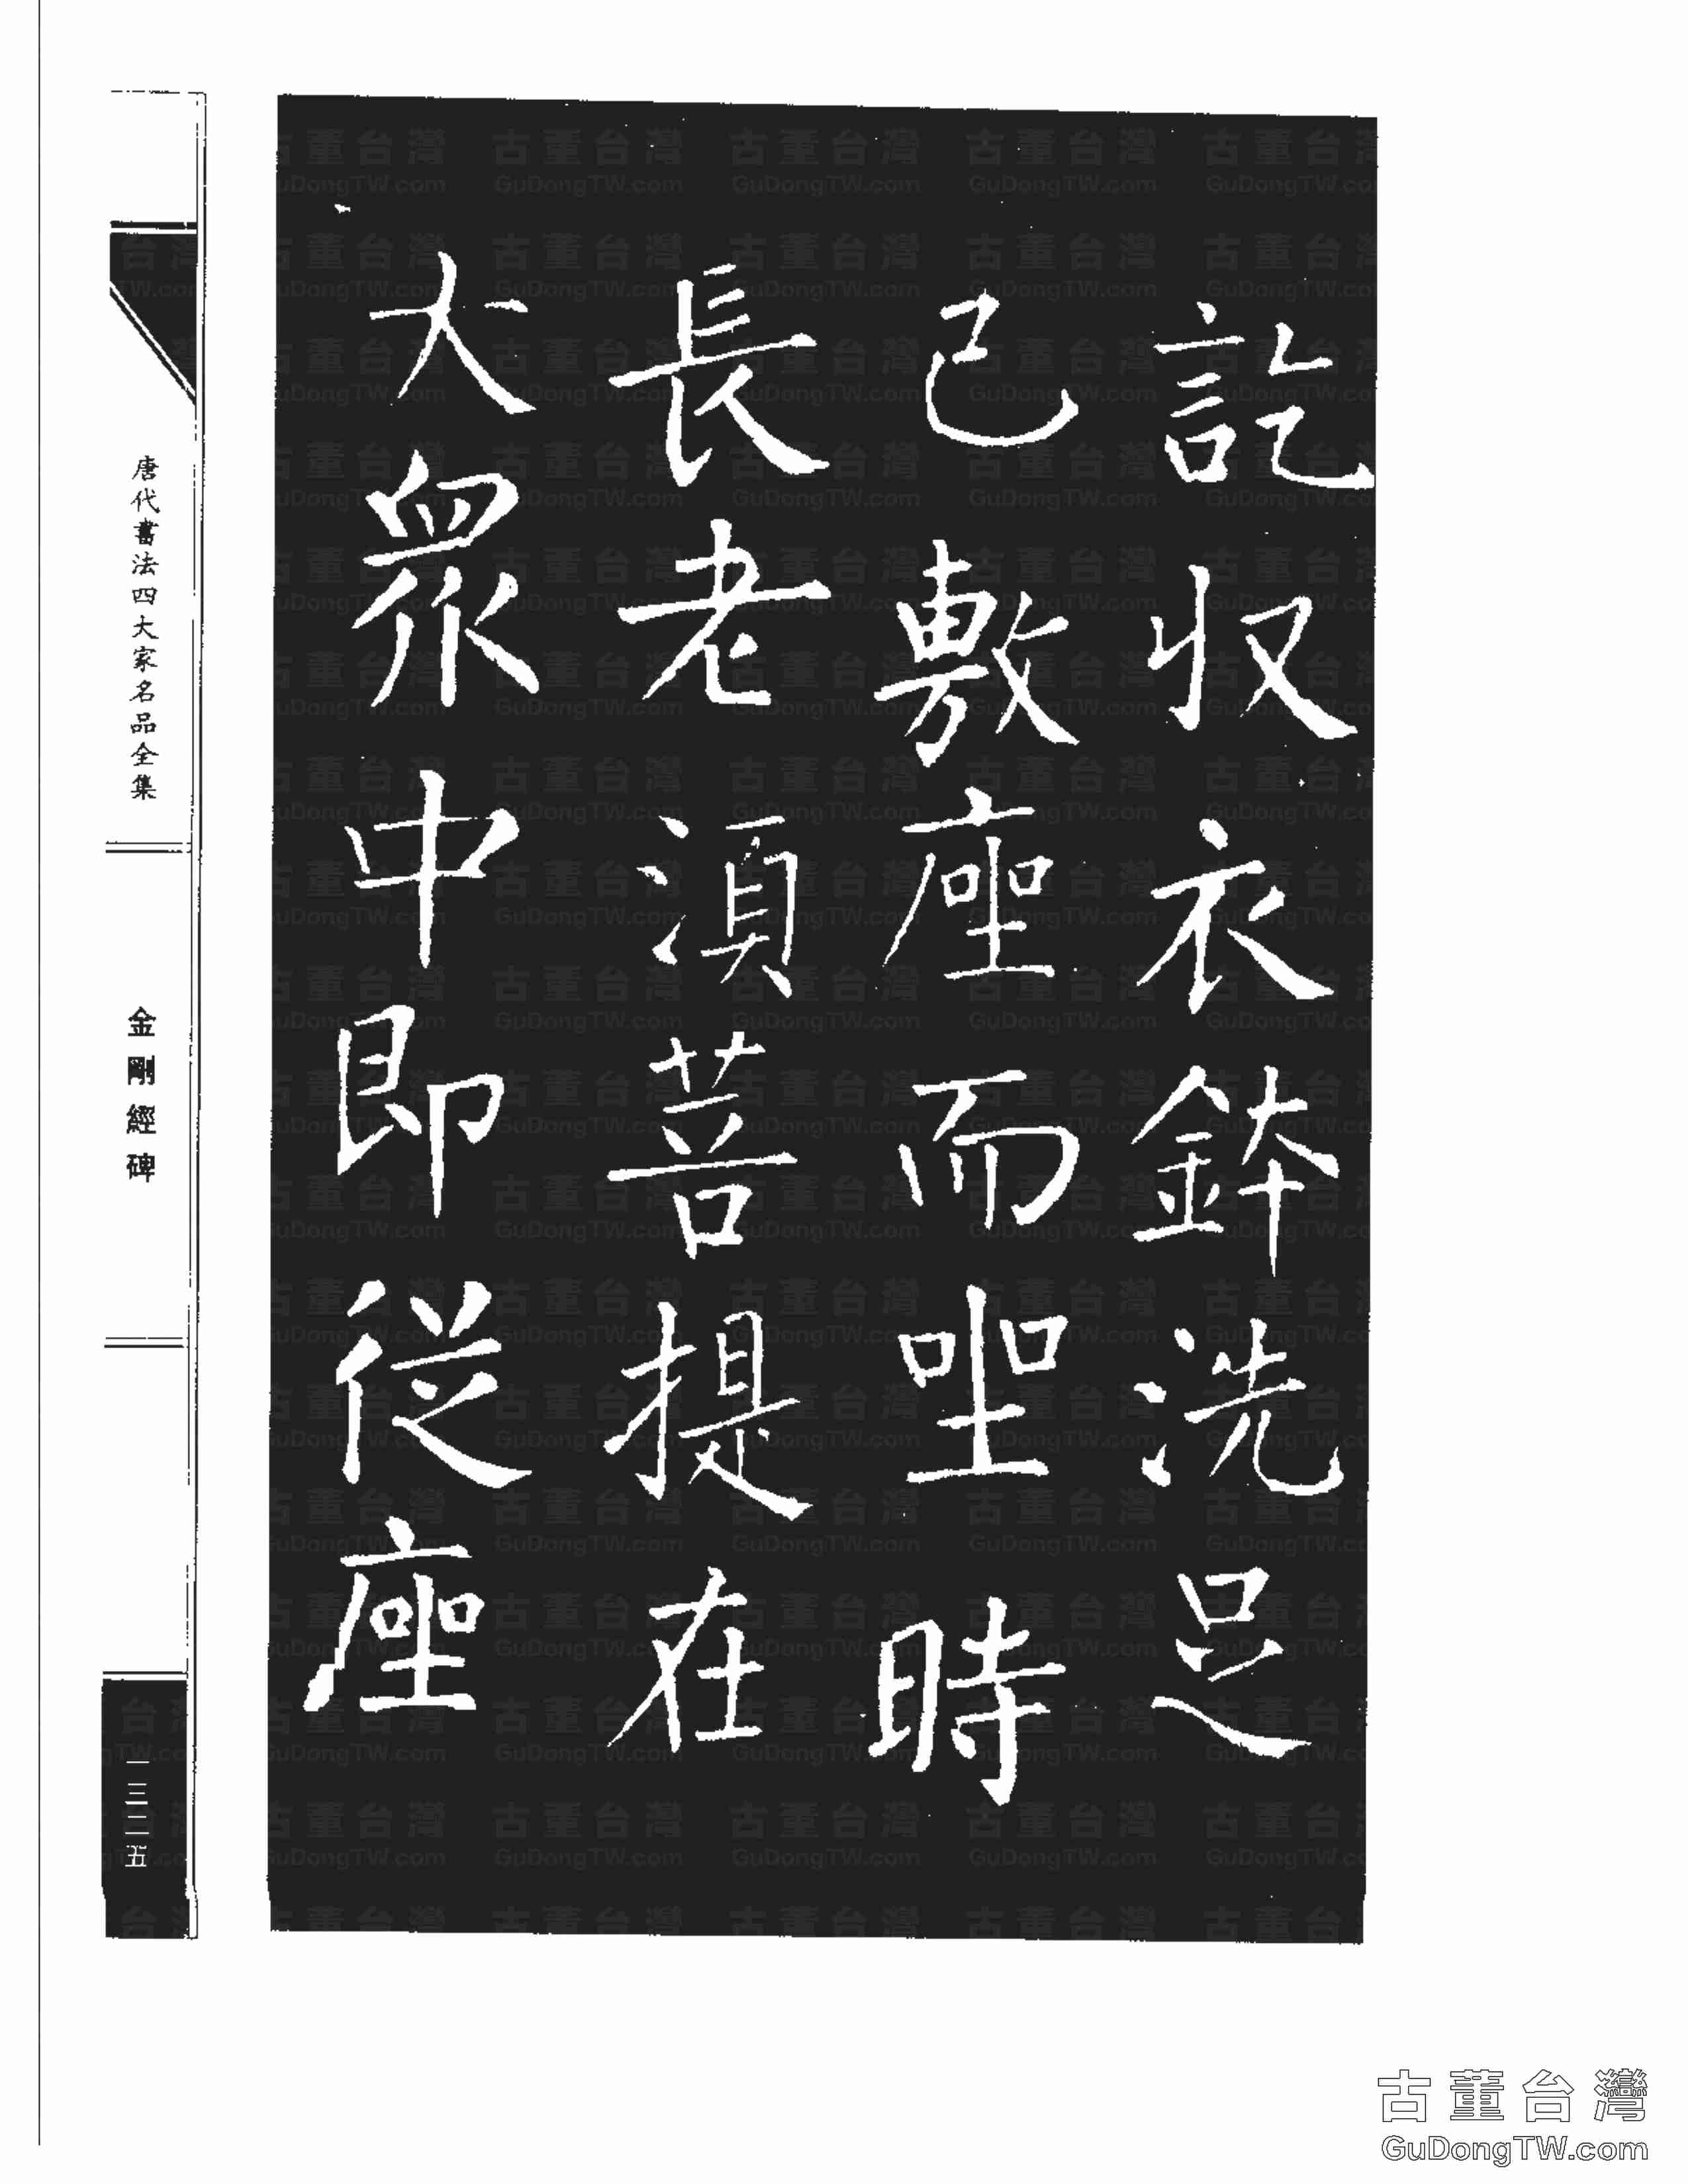 訖収衣鉢洗足
已敷座而坐時
長老湏菩提在
大衆中即從座
唐代書法四大家名品全集
金剛經碑
一三二五
古董台灣
GuDongTW.com